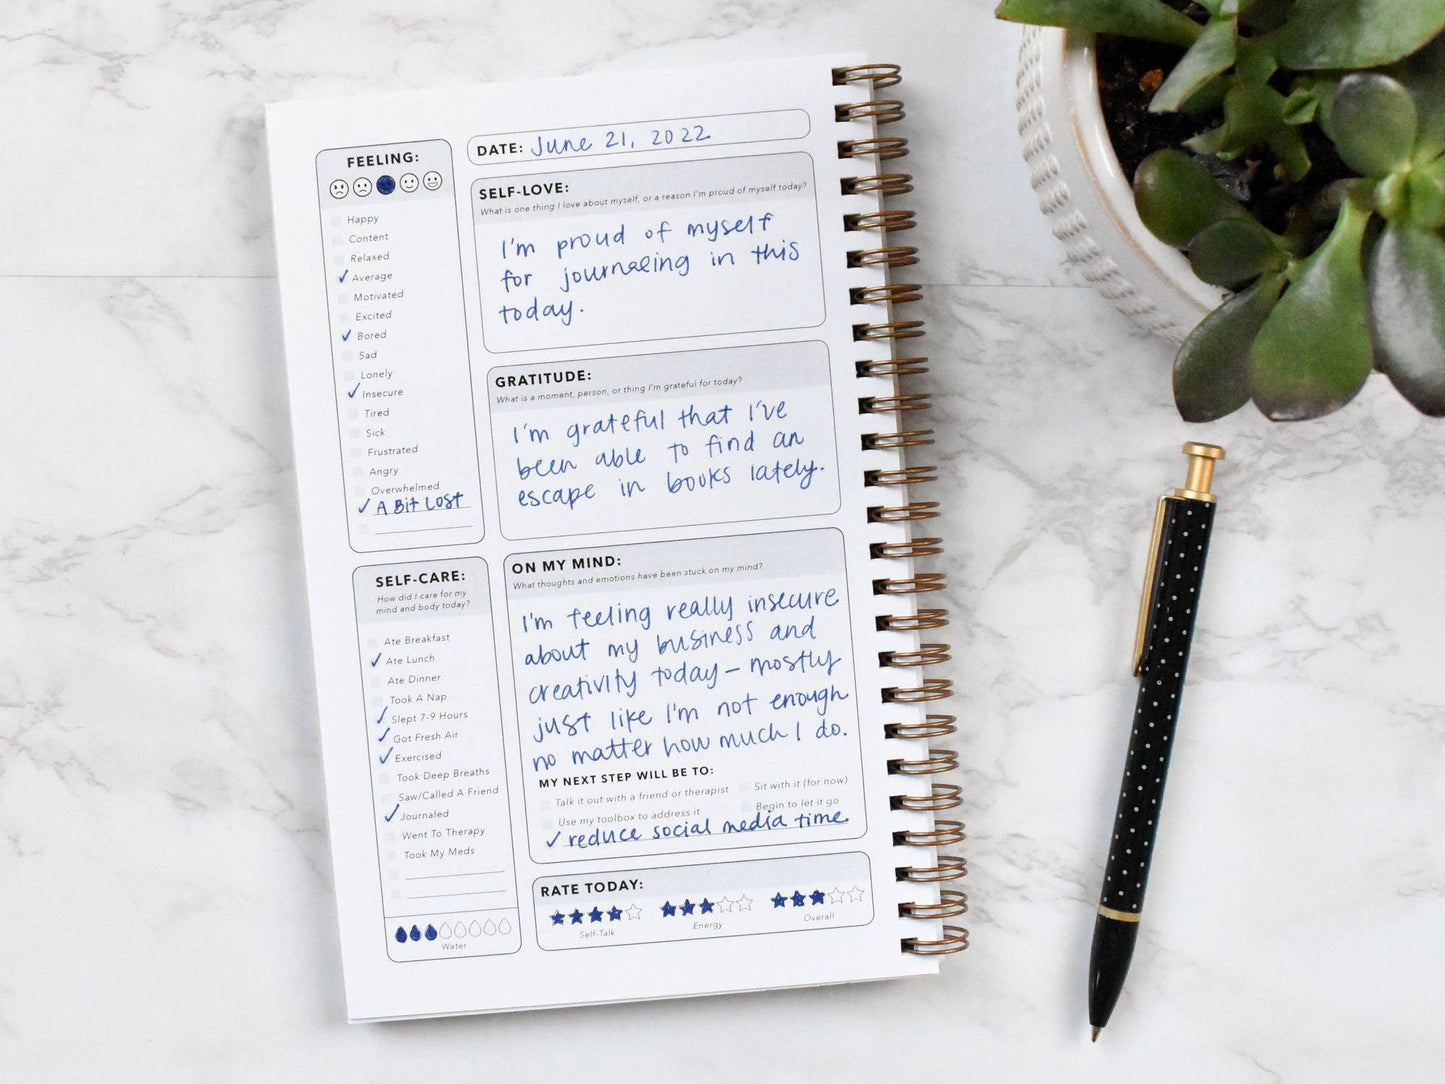 FEELING:
Happy
Content
Relaxed
✓ Average
Motivated
Excited
✓ Bored
Sad
Lonely
✓ Insecure
Tired
Sick
Frustrated
Angry
Overwhelmed
✓ A Bit Lost
SELF-CARE:
How did I care for my
mind and body today?
Ate Breakfast
✓ Ate Lunch
Ate Dinner
Took A Nap
✓ Slept 7-9 Hours
✓ Got Fresh Air
✓ Exercised
Took Deep Breaths
Saw/Called A Friend
✓ Journaled
Went To Therapy
Took My Meds
Water
DATE: June 21, 2022
SELF-LOVE:
What is one thing I love about myself, or a reason I'm proud of myself today?
I'm proud of myself
for journaling in this
today.
GRATITUDE:
What is a moment, person, or thing I'm grateful for today?
I'm grateful that I've
been able to find an
escape in books lately.
ON MY MIND:
What thoughts and emotions have been stuck on my mind?
I'm feeling really insecure
about my business and
creativity today – mostly
just like I'm not enough
no matter how much I do.
MY NEXT STEP WILL BE TO:
Talk it out with a friend or therapist
Sit with it (for now)
Use my toolbox to address it
Begin to let it go
✓ reduce social media time
RATE TODAY:
Self-Talk
Energy
Overall